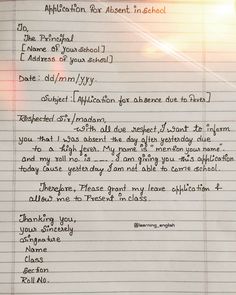 Application for Absent in School
To,
The Principal
[Name of your school]
[Address of your School]
Date: dd/mm/yyy
Subject: [Application for absence due to Fever]
Respected Sir/madam,
-with all due respect, I want to inform
you that I was absent the day after yesterday due
to a high fever. My name is "mention your name".
and my roll no. is ...... I am giving you this application
today cause yesterday I am not able to come school.
Therefore, Please grant my leave application &
allow me to Present in class.
Thanking you,
@learning_english
your Sincerely
Singnature
Name
Class
Section
Roll No.